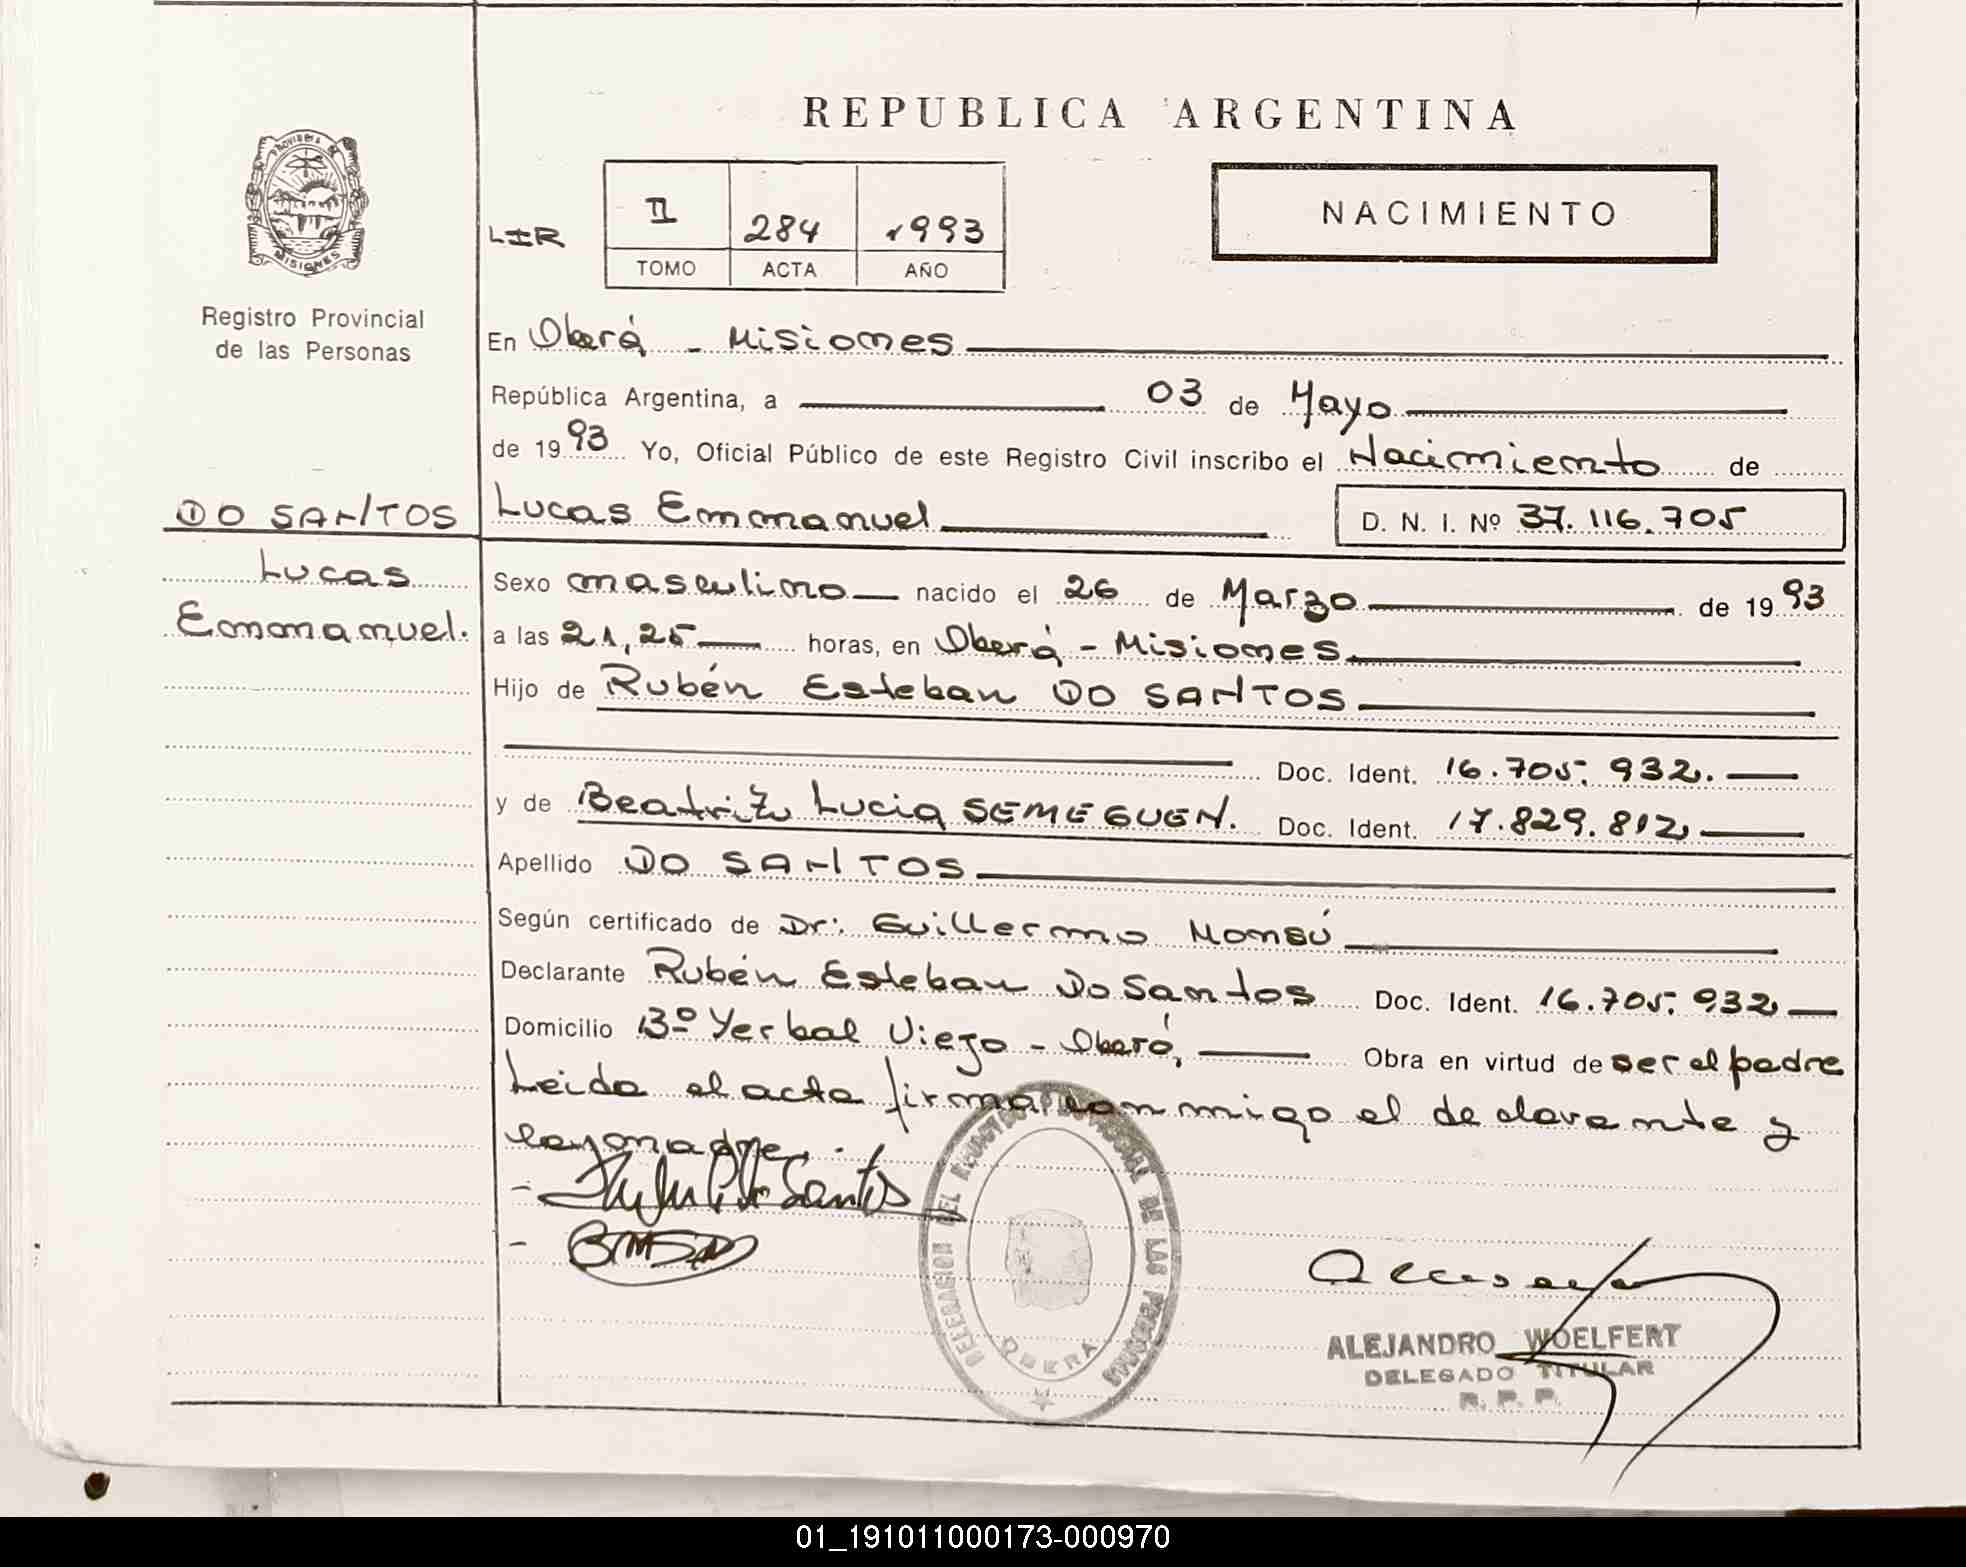 REPUBLICA ARGENTINA
PROVINCIA DE
MISIONES
Registro Provincial
de las Personas
LIR
II 284 1993
TOMO ACTA AÑO
NACIMIENTO
En Oberá - Misiones
República Argentina, a 03 de Mayo
de 1993 Yo, Oficial Público de este Registro Civil inscribo el Nacimiento de
DO SANTOS
Lucas
Emmanuel.
Lucas Emmanuel D. N. I. Nº 37.116.705
Sexo masculino nacido el 26 de Marzo de 1993
a las 21,25 horas, en Oberá - Misiones
Hijo de Rubén Esteban DO SANTOS
Doc. Ident. 16.705.932.
y de Beatriz Lucia SEMEGUEN. Doc. Ident. 17.829.812
Apellido DO SANTOS
Según certificado de Dr: Guillermo Monsú
Declarante Rubén Esteban Do Santos Doc. Ident. 16.705.932
Domicilio Bº Yerbal Viejo - Oberá, Obra en virtud de ser el padre
Leida el acta firma con migo el declarante y
la madre.
DELEGACION DEL REGISTRO PROVINCIAL DE LAS PERSONAS
OBERA
ALEJANDRO WOELFERT
DELEGADO TITULAR
R. P. P.
01_191011000173-000970